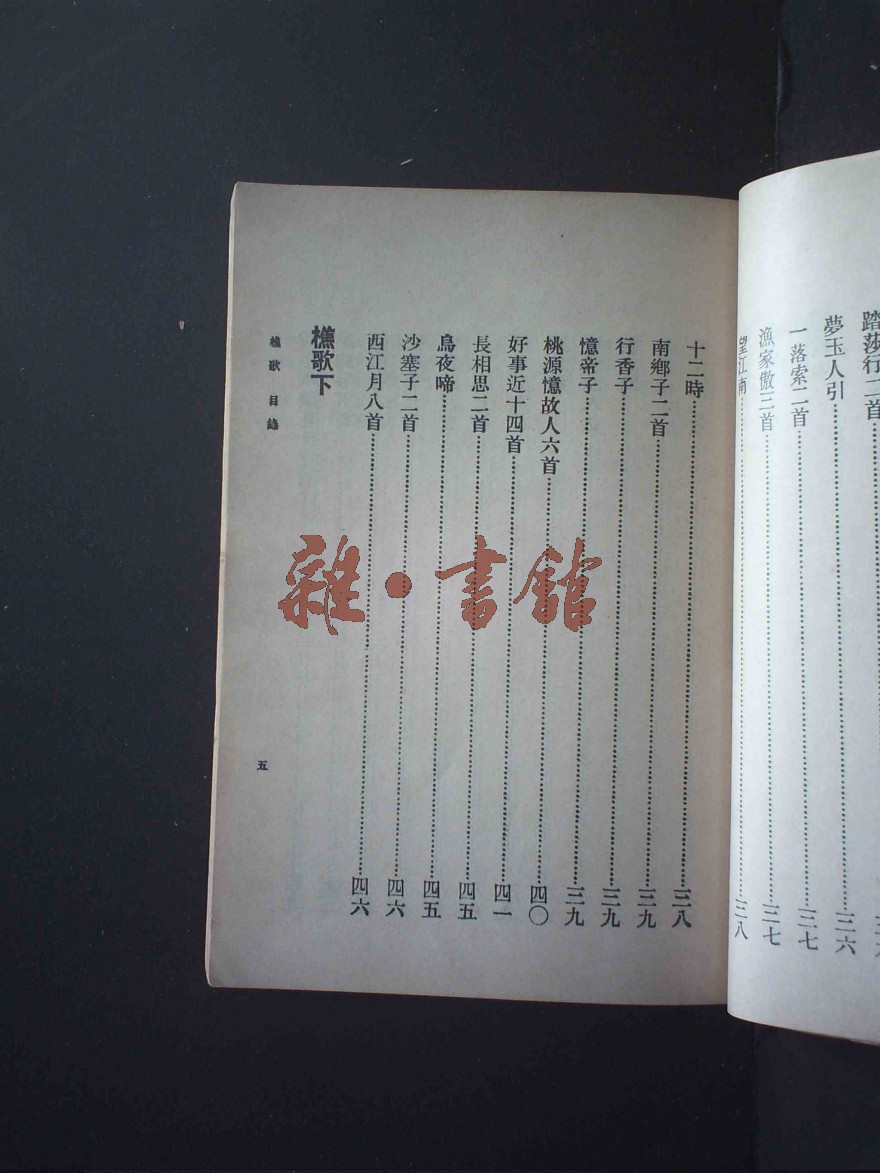 踏莎行二首
夢玉人引……三六
一落索二首……三七
漁家傲三首……三七
望江南……三八
十二時……三八
南鄉子二首……三九
行香子……三九
憶帝子……三九
桃源憶故人六首……四〇
好事近十四首……四一
長相思二首……四五
烏夜啼……四五
沙塞子二首……四六
西江月八首……四六
樵歌下
樵歌 目錄
五
雜·書館